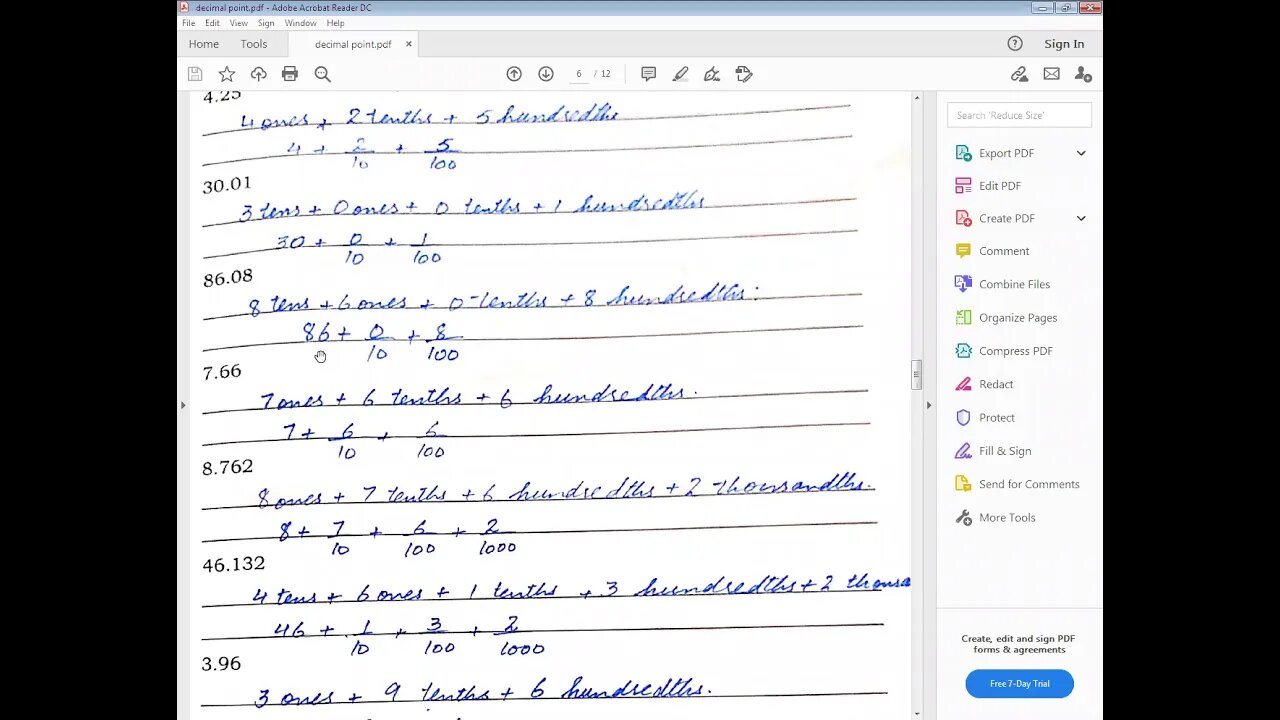 decimal point.pdf - Adobe Acrobat Reader DC
File Edit View Sign Window Help
Home Tools decimal point.pdf × Sign In
6 / 12
4.25
4 ones + 2 tenths + 5 hundredths
4 + 2/10 + 5/100
30.01
3 tens + 0 ones + 0 tenths + 1 hundredths
30 + 0/10 + 1/100
86.08
8 tens + 6 ones + 0 tenths + 8 hundredths.
86 + 0/10 + 8/100
7.66
7 ones + 6 tenths + 6 hundredths.
7 + 6/10 + 6/100
8.762
8 ones + 7 tenths + 6 hundredths + 2 thousandths.
8 + 7/10 + 6/100 + 2/1000
46.132
4 tens + 6 ones + 1 tenths + 3 hundredths + 2 thousa
46 + 1/10 + 3/100 + 2/1000
3.96
3 ones + 9 tenths + 6 hundredths.
Search 'Reduce Size'
Export PDF
Edit PDF
Create PDF
Comment
Combine Files
Organize Pages
Compress PDF
Redact
Protect
Fill & Sign
Send for Comments
More Tools
Create, edit and sign PDF
forms & agreements
Free 7-Day Trial